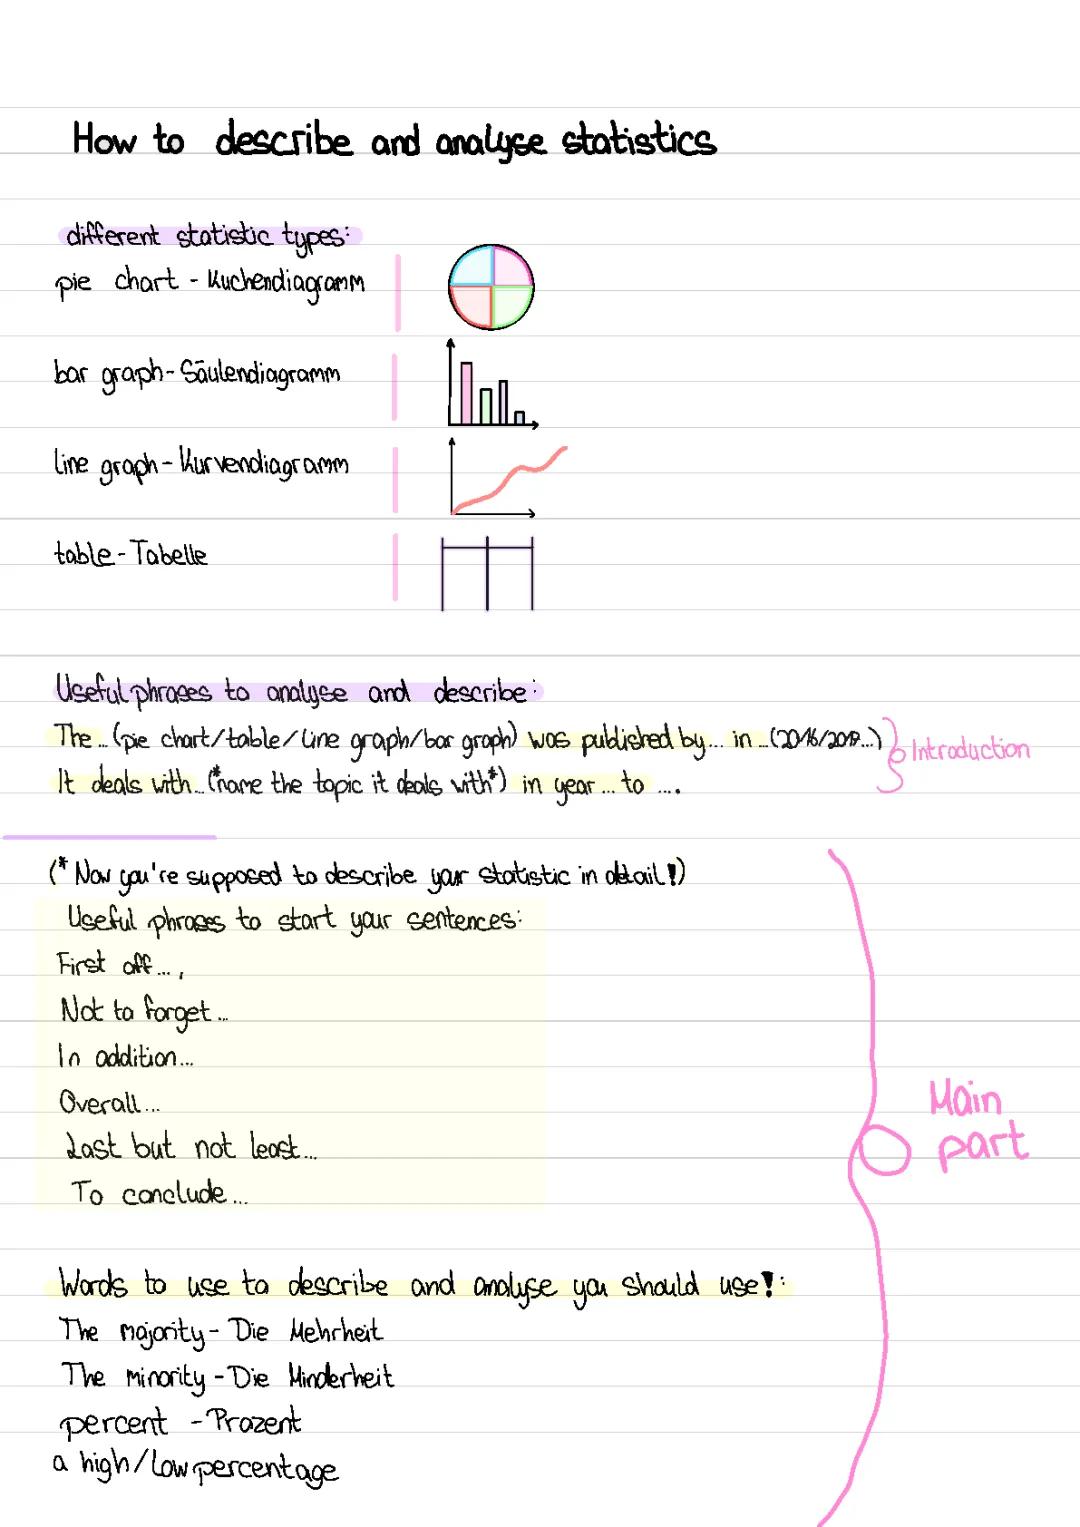 How to describe and analyse statistics
different statistic types:
pie chart - Kuchendiagramm
bar graph - Säulendiagramm
line graph - Kurvendiagramm
table - Tabelle
Useful phrases to analyse and describe:
The ... (pie chart/table/line graph/bar graph) was published by ... in ... (2016/2019...)
Introduction
It deals with ... (*name the topic it deals with*) in year ... to ....
(* Now you're supposed to describe your statistic in detail!)
Useful phrases to start your sentences:
First off ... ,
Not to forget ...
In addition ...
Overall ...
Last but not least ...
To conclude ...
Main
part
Words to use to describe and analyse you should use!:
The majority - Die Mehrheit
The minority - Die Minderheit
percent - Prozent
a high/low percentage